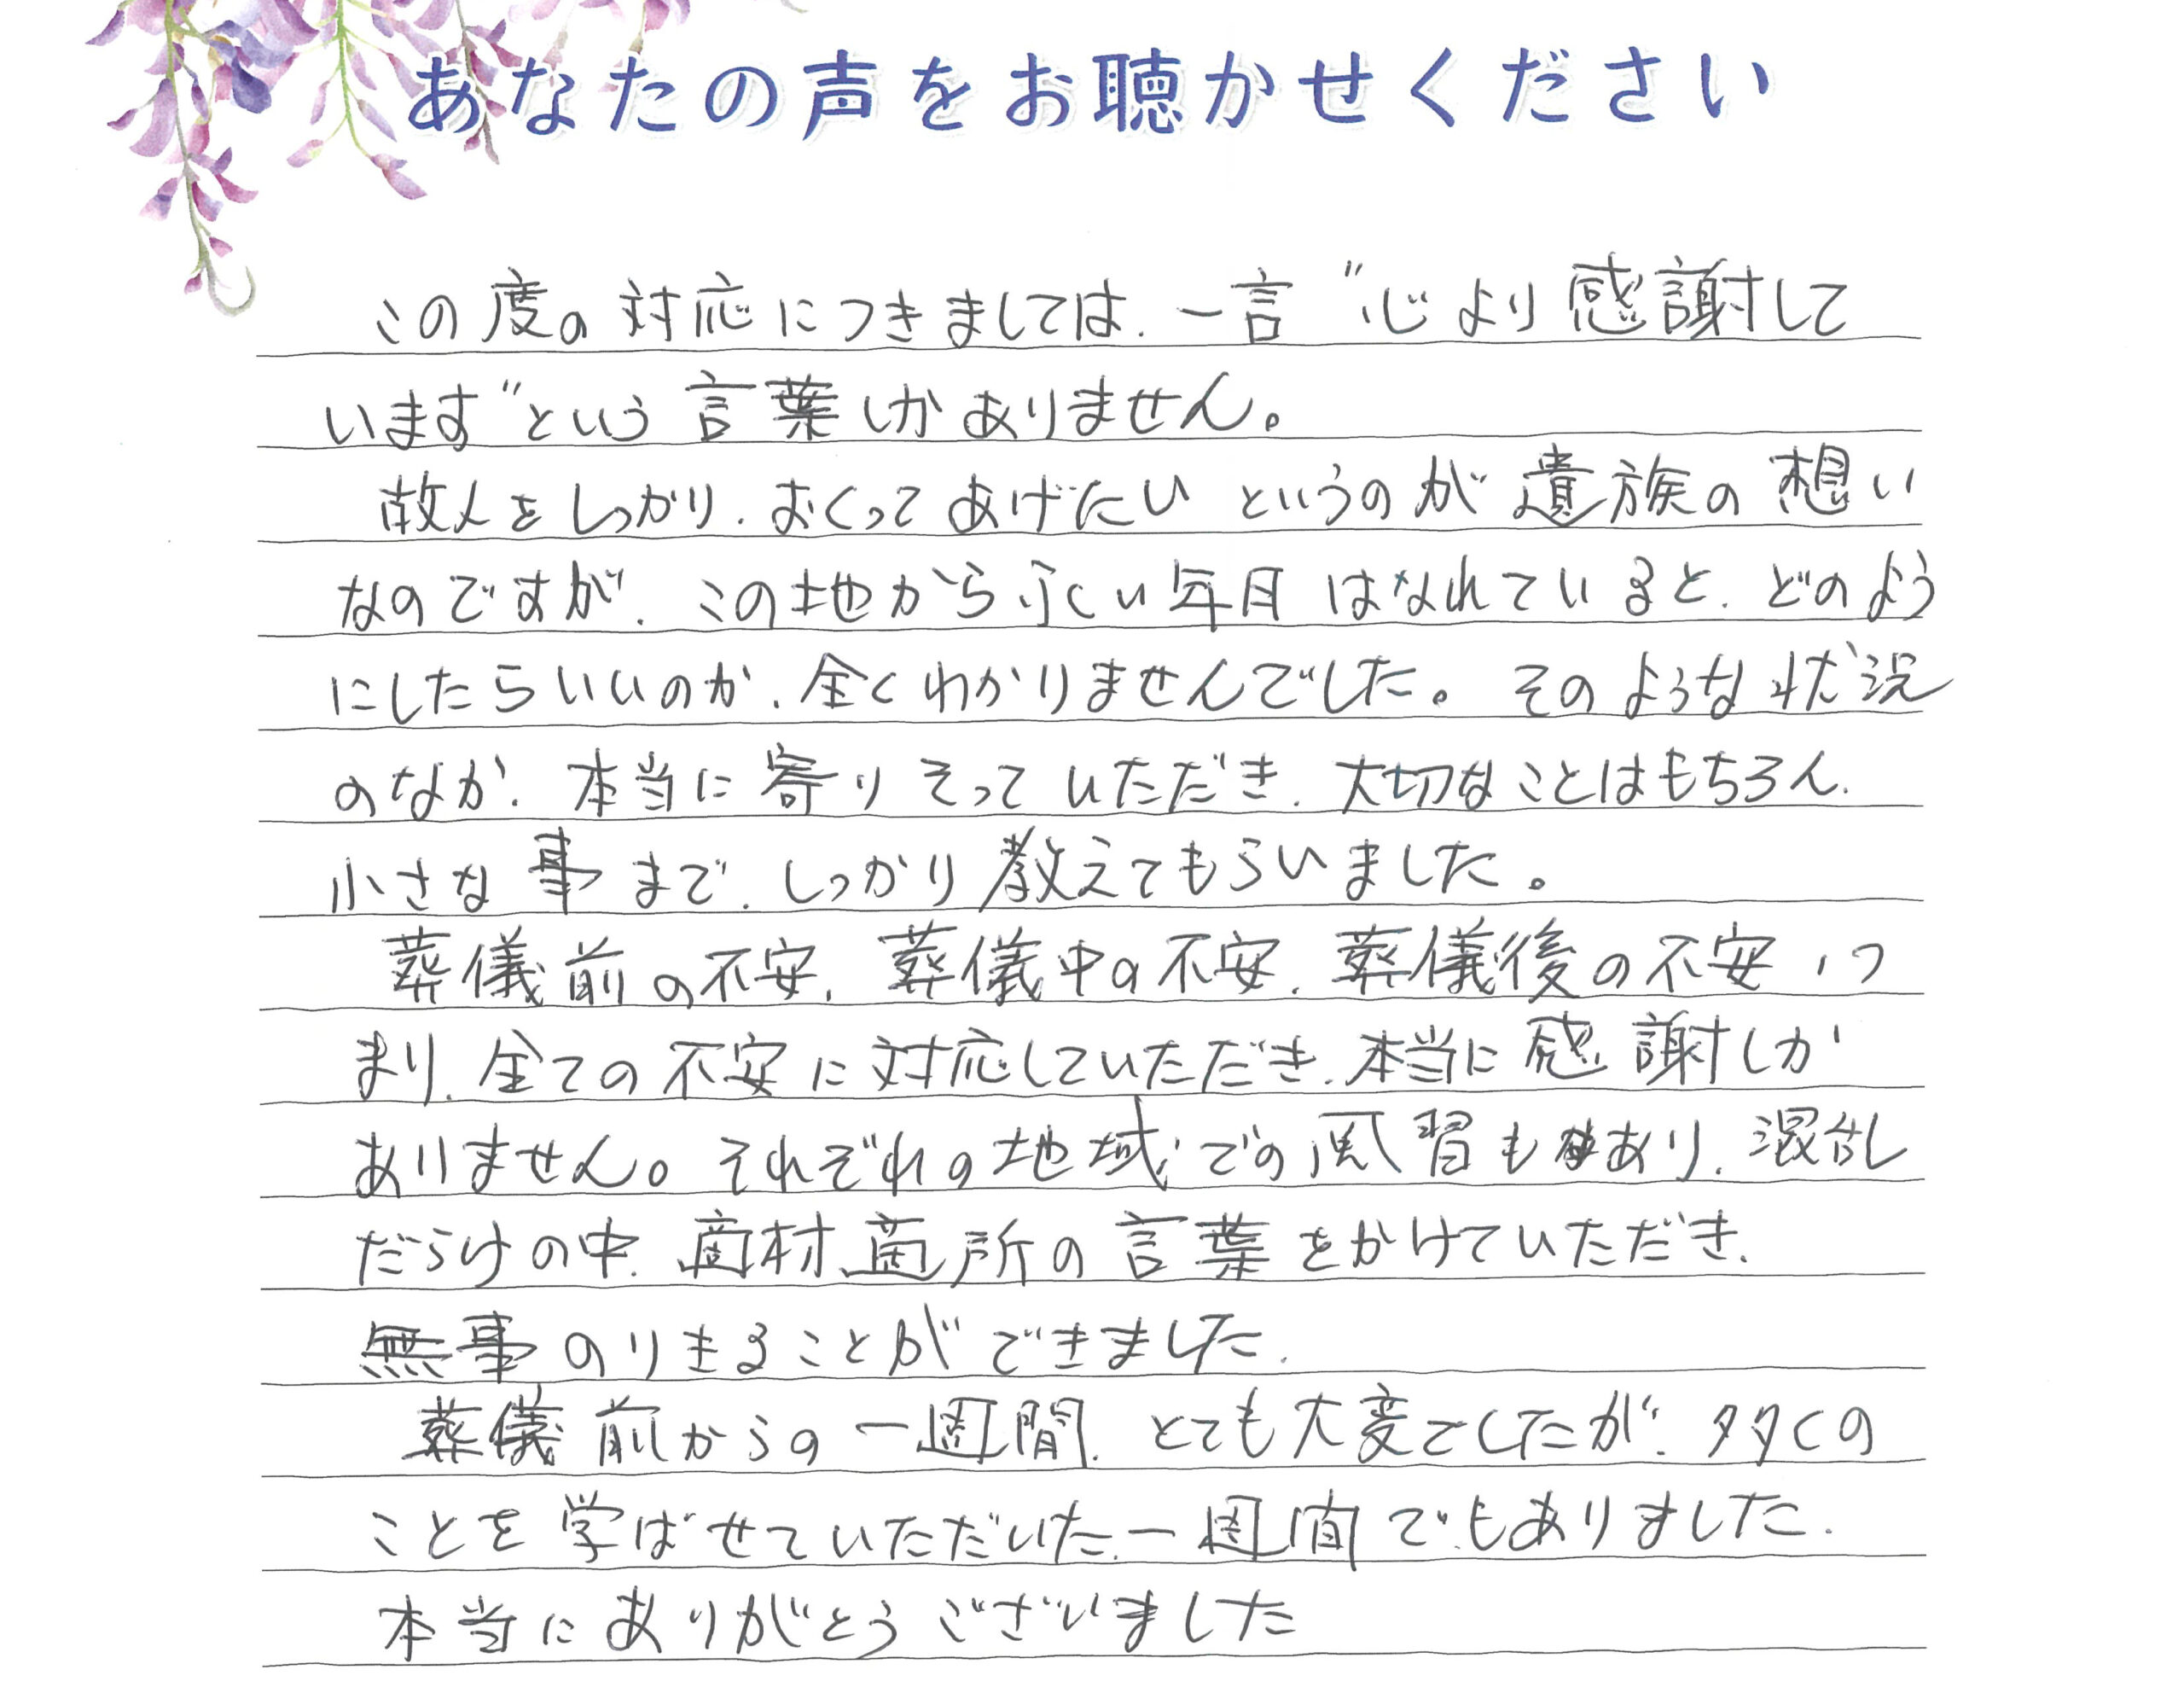 あなたの声をお聴かせください
この度の対応につきましては、一言“心より感謝して
います”という言葉しかありません。
故人をしっかり、おくってあげたいというのが遺族の想い
なのですが、この地から永い年月はなれていると、どのよう
にしたらいいのか、全くわかりませんでした。そのような状況
のなか、本当に寄りそっていただき、大切なことはもちろん、
小さな事まで、しっかり教えてもらいました。
葬儀前の不安、葬儀中の不安、葬儀後の不安、つ
まり、全ての不安に対応していただき、本当に感謝しか
ありません。それぞれの地域での風習もあり、混乱
だらけの中、適材適所の言葉をかけていただき、
無事のりきることができました。
葬儀前からの一週間、とても大変でしたが、多くの
ことを学ばせていただいた、一週間でもありました。
本当にありがとうございました